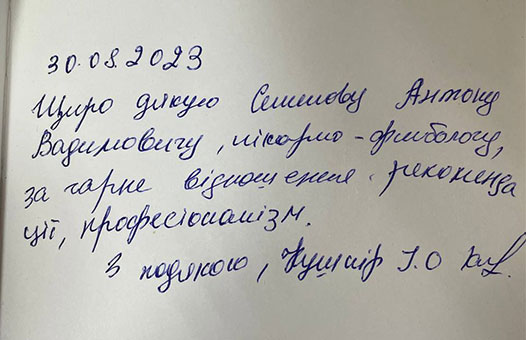 30.08.2023
Щиро дякую Семенову Антону
Вадимовичу, лікарю-флебологу,
за гарне відношення, рекоменда
ції, професіоналізм.
З подякою, Кушнір І.О